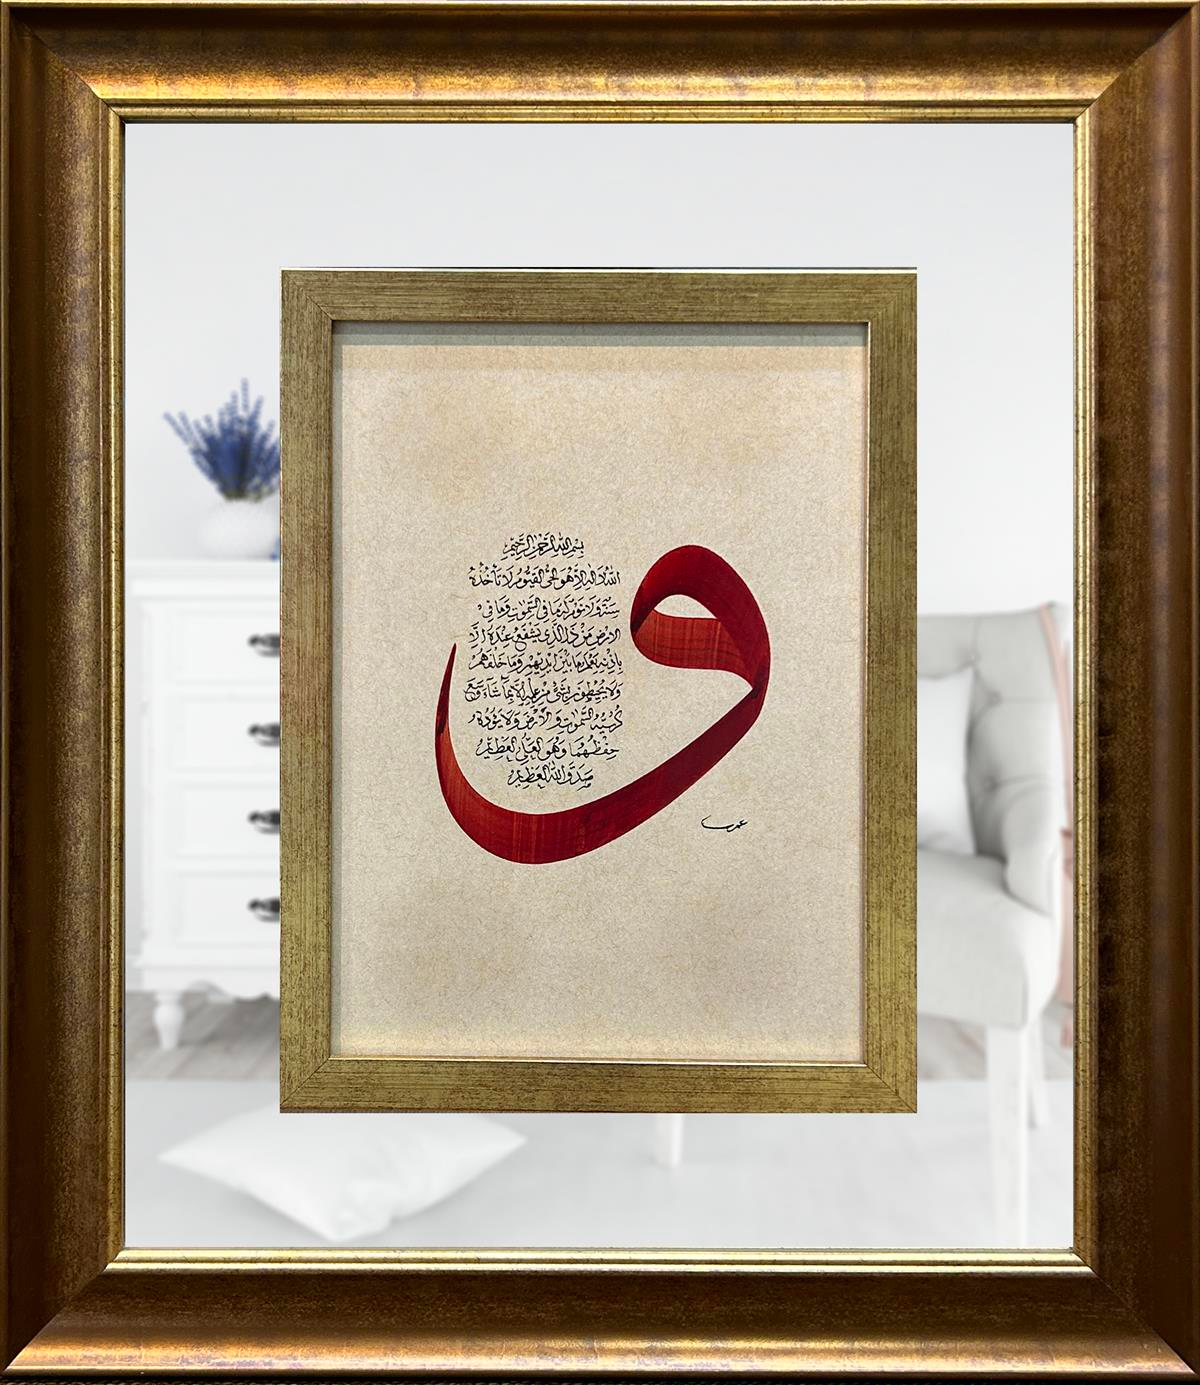 بسم الله الرحمن الرحيم
الله لا اله الا هو الحي القيوم لا تأخذه
سنة ولا نوم له ما في السموات وما في
الارض من ذا الذي يشفع عنده الا
باذنه يعلم ما بين ايديهم وما خلفهم
ولا يحيطون بشئ من علمه الا بما شاء وسع
كرسيه السموات والارض ولا يؤده
حفظهما وهو العلي العظيم
صدق الله العظيم
و